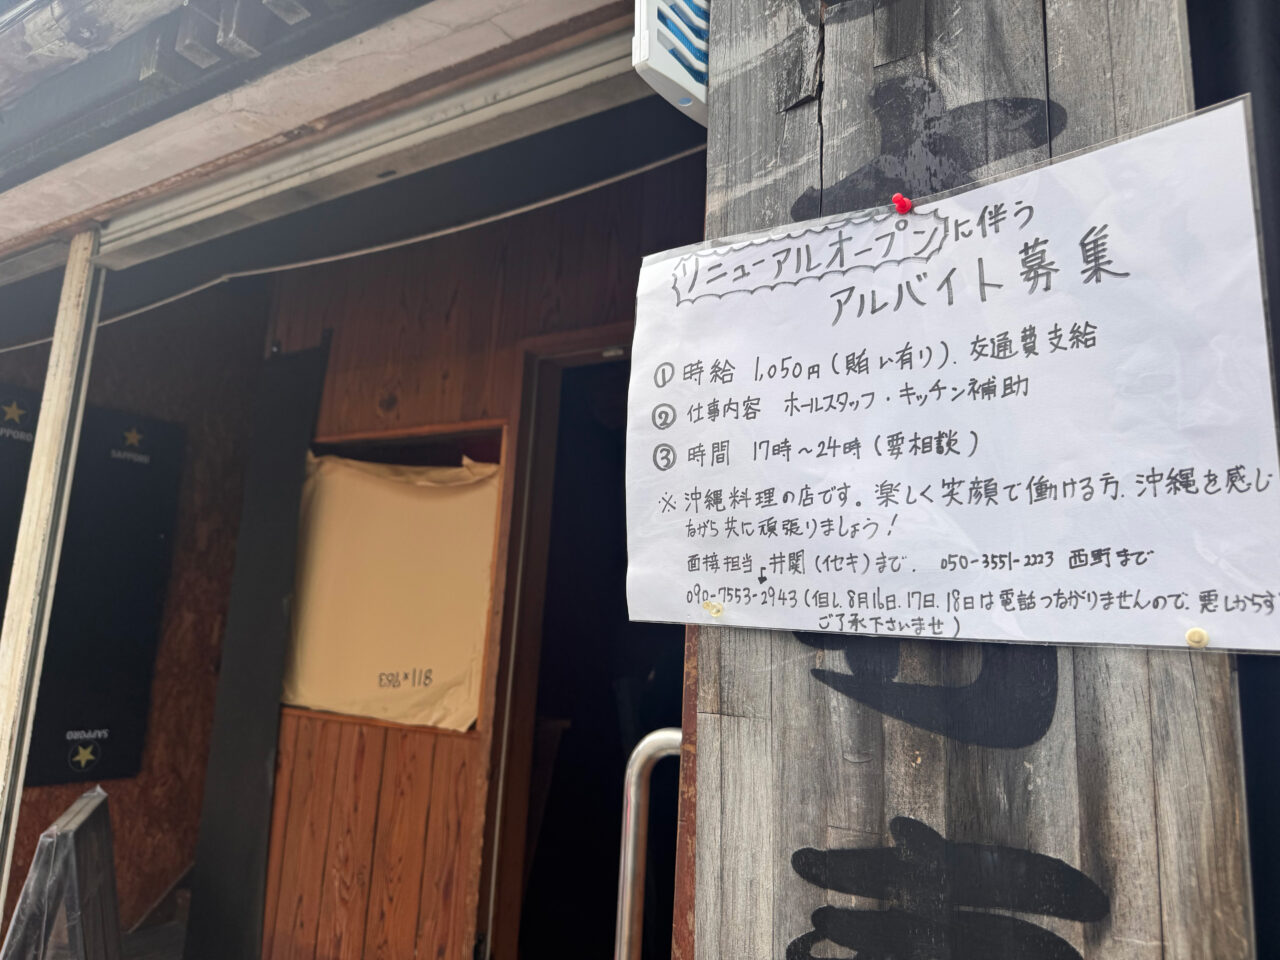 リニューアルオープンに伴う
アルバイト募集
① 時給 1,050円(賄い有り). 交通費支給
② 仕事内容 ホールスタッフ・キッチン補助
③ 時間 17時〜24時(要相談)
※ 沖縄料理の店です。楽しく笑顔で働ける方. 沖縄を感じ
ながら共に頑張りましょう!
面接担当 井関(イセキ)まで. 050-3551-2223 西野まで
090-7553-2943(但し. 8月16日. 17日. 18日は電話つながりませんので. 悪しからず
ご了承下さいませ)
SAPPORO
SAPPORO
811×763